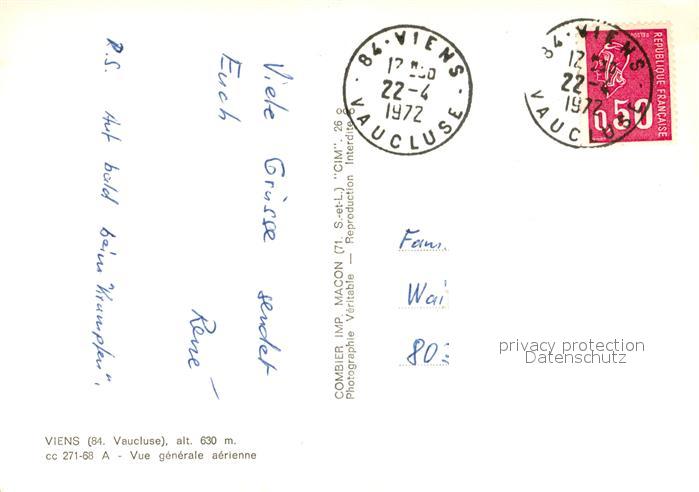 Viele Grüsse sendet
Euch
René
P.S. Auf bald beim "Krampfen".
VIENS (84. Vaucluse), alt. 630 m.
cc 271-68 A - Vue générale aérienne
COMBIER IMP. MACON (71. S.-et-L.) "CIM". 26
Photographie Véritable — Reproduction Interdite
84 · VIENS ·
22-4
1972
VAUCLUSE
84 · VIENS
22-4
1972
VAUCLUSE
POSTES
RÉPUBLIQUE FRANÇAISE
0.50
Fam.
Wai
80
privacy protection
Datenschutz